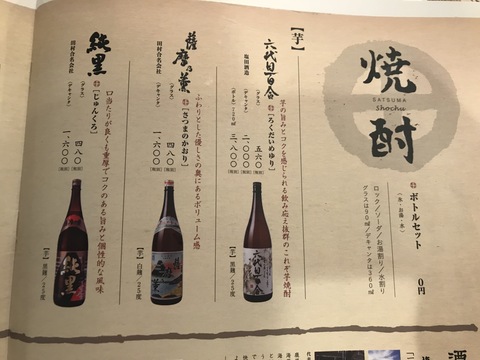 焼酎
SATSUMA
Shochu
ボトルセット
(氷・お湯・水)
0円
ロック/ソーダ/お湯割り/水割り
グラスは90㎖/デキャンタは360㎖
【芋】
六代目百合
[ろくだいめゆり]
塩田酒造
(グラス)
五六〇
(税別)
(デキャンタ)
二、〇〇〇
(税別)
(ボトル)720㎖
三、八〇〇
(税別)
芋の旨みとコクを感じられる飲み応え抜群のこれぞ芋焼酎
【芋】黒麹/25度
薩摩乃薫
[さつまのかおり]
田村合名会社
(グラス)
四八〇
(税別)
(デキャンタ)
一、六〇〇
(税別)
ふわりとした優しさの奥にあるボリューム感
【芋】白麹/25度
純黒
[じゅんくろ]
田村合名会社
(グラス)
四八〇
(税別)
(デキャンタ)
一、六〇〇
(税別)
口当たりが良くも重厚でコクのある旨みと個性的な風味
【芋】黒麹/25度
純黒
六代目百合
酒